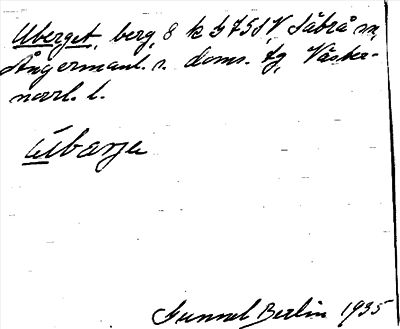 Uberget, berg, 8 k b 75 SV Säbrå sn,
Ångermanl. s. doms. tg, Väster-
norrl. l.
Ubærje
Gunnel Berlin 1935